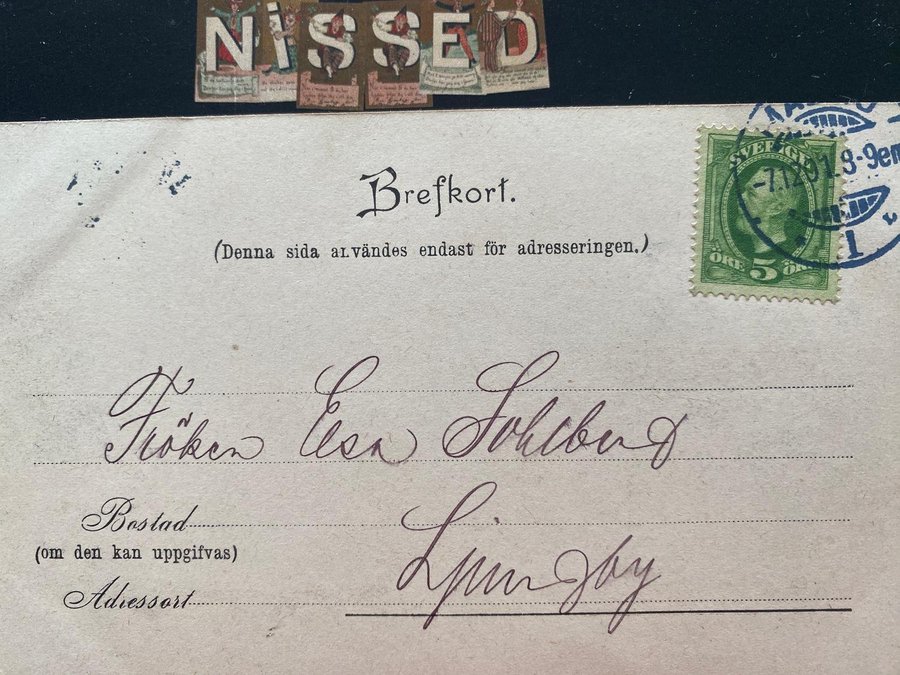 NiSSED
Brefkort.
(Denna sida användes endast för adresseringen.)
SVERIGE
ÖRE 5 ÖRE
-7.12.01.8-9em
1
Fröken Elsa Sohlberg
Bostad
(om den kan uppgifvas)
Ljungby
Adressort